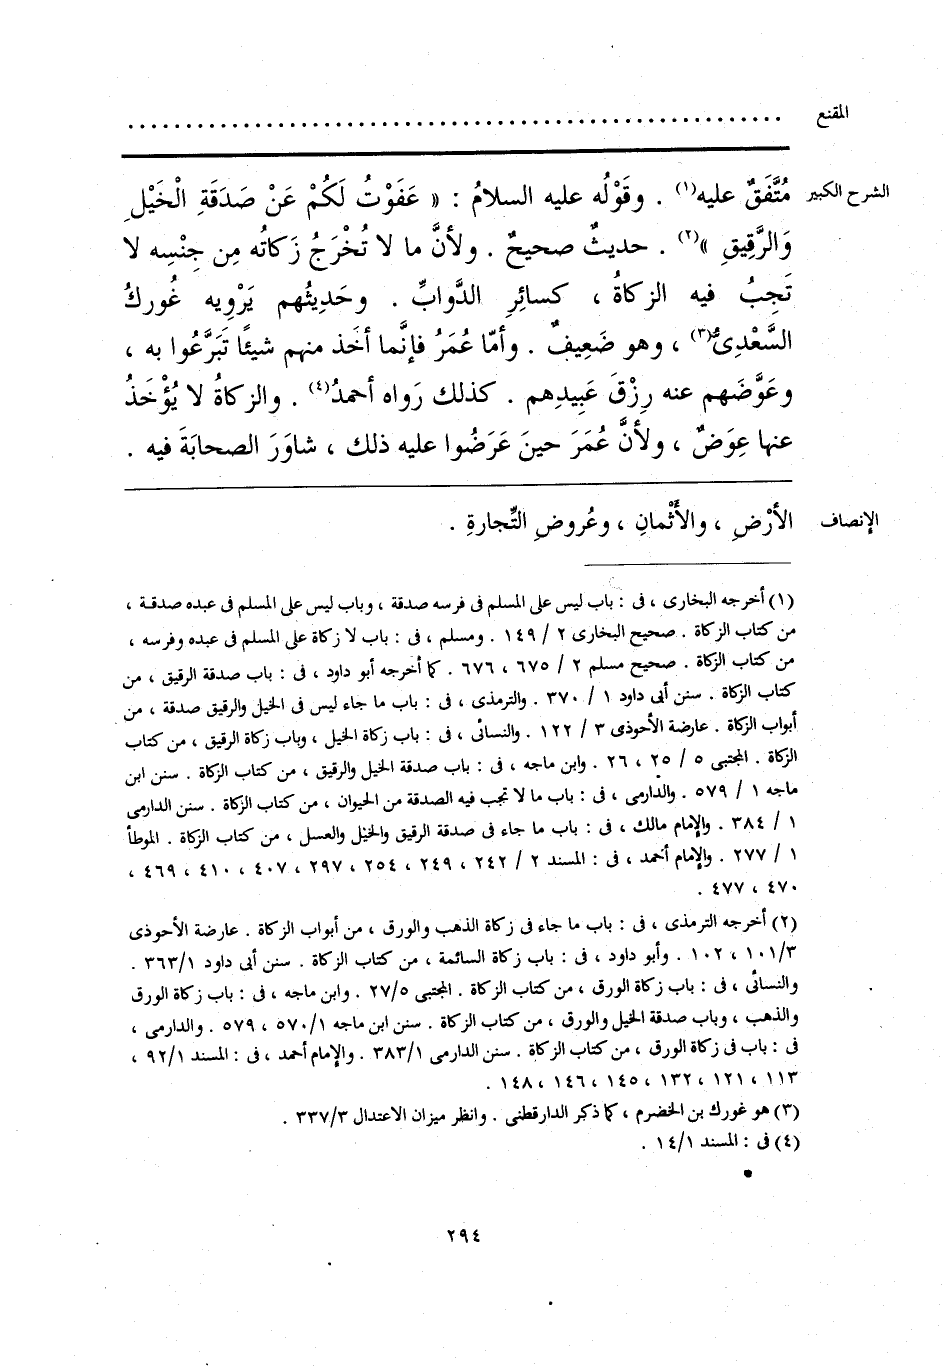 المقنع . . . . . . . . . . . . . . . . . . . . . . . . . . . . . . . . . . . . . . . . . . . . . . . . . . . . . . . . .
الشرح الكبير مُتَّفَقٌ عليه(١) . وقَوْلُه عليه السلامُ : « عَفَوْتُ لَكُمْ عَنْ صَدَقَةِ الْخَيْلِ
وَالرَّقِيقِ »(٢) . حديثٌ صحيحٌ . ولأنَّ ما لا تُخْرَجُ زَكاتُه مِن جِنْسِه لا
تَجِبُ فيه الزكاةُ ، كسائِرِ الدَّوابِّ . وحَدِيثُهم يَرْوِيه غُورك
السَّعْدِىُّ(٣) ، وهو ضَعِيفٌ . وأمّا عُمَرُ فإنَّما أخَذ منهم شيئًا تَبَرَّعُوا به ،
وعَوَّضَهم عنه رِزْقَ عَبِيدِهم . كذلك رَواه أحمدُ(٤) . والزكاةُ لا يُؤْخَذُ
عنها عِوَضٌ ، ولأنَّ عُمَرَ حينَ عَرَضُوا عليه ذلك ، شاوَرَ الصحابَةَ فيه .
الإنصاف الأرْضِ ، والأَثْمانِ ، وعُروضِ التِّجارةِ .
(١) أخرجه البخارى ، فى : باب ليس على المسلم فى فرسه صدقة ، وباب ليس على المسلم فى عبده صدقة ،
من كتاب الزكاة . صحيح البخارى ٢ / ١٤٩ . ومسلم ، فى : باب لا زكاة على المسلم فى عبده وفرسه ،
من كتاب الزكاة . صحيح مسلم ٢ / ٦٧٥ ، ٦٧٦ . كما أخرجه أبو داود ، فى : باب صدقة الرقيق ، من
كتاب الزكاة . سنن أبى داود ١ / ٣٧٠ . والترمذى ، فى : باب ما جاء ليس فى الخيل والرقيق صدقة ، من
أبواب الزكاة . عارضة الأحوذى ٣ / ١٢٢ . والنسائى ، فى : باب زكاة الخيل ، وباب زكاة الرقيق ، من كتاب
الزكاة . المجتبى ٥ / ٢٥ ، ٢٦ . وابن ماجه ، فى : باب صدقة الخيل والرقيق ، من كتاب الزكاة . سنن ابن
ماجه ١ / ٥٧٩ . والدارمى ، فى : باب ما لا تجب فيه الصدقة من الحيوان ، من كتاب الزكاة . سنن الدارمى
١ / ٣٨٤ . والإمام مالك ، فى : باب ما جاء فى صدقة الرقيق والخيل والعسل ، من كتاب الزكاة . الموطأ
١ / ٢٧٧ . والإمام أحمد ، فى : المسند ٢ / ٢٤٢ ، ٢٤٩ ، ٢٥٤ ، ٢٩٧ ، ٤٠٧ ، ٤١٠ ، ٤٦٩ ،
٤٧٠ ، ٤٧٧ .
(٢) أخرجه الترمذى ، فى : باب ما جاء فى زكاة الذهب والورق ، من أبواب الزكاة . عارضة الأحوذى
٣/١٠١ ، ١٠٢ . وأبو داود ، فى : باب زكاة السائمة ، من كتاب الزكاة . سنن أبى داود ١/٣٦٣ .
والنسائى ، فى : باب زكاة الورق ، من كتاب الزكاة . المجتبى ٥/٢٧ . وابن ماجه ، فى : باب زكاة الورق
والذهب ، وباب صدقة الخيل والورق ، من كتاب الزكاة . سنن ابن ماجه ١/٥٧٠ ، ٥٧٩ . والدارمى ،
فى : باب فى زكاة الورق ، من كتاب الزكاة . سنن الدارمى ١/٣٨٣ . والإمام أحمد ، فى : المسند ١/٩٢ ،
١١٣ ، ١٢١ ، ١٣٢ ، ١٤٥ ، ١٤٦ ، ١٤٨ .
(٣) هو غورك بن الخضرم ، كما ذكر الدارقطنى . وانظر ميزان الاعتدال ٣/٣٣٧ .
(٤) فى : المسند ١/١٤ .
٢٩٤